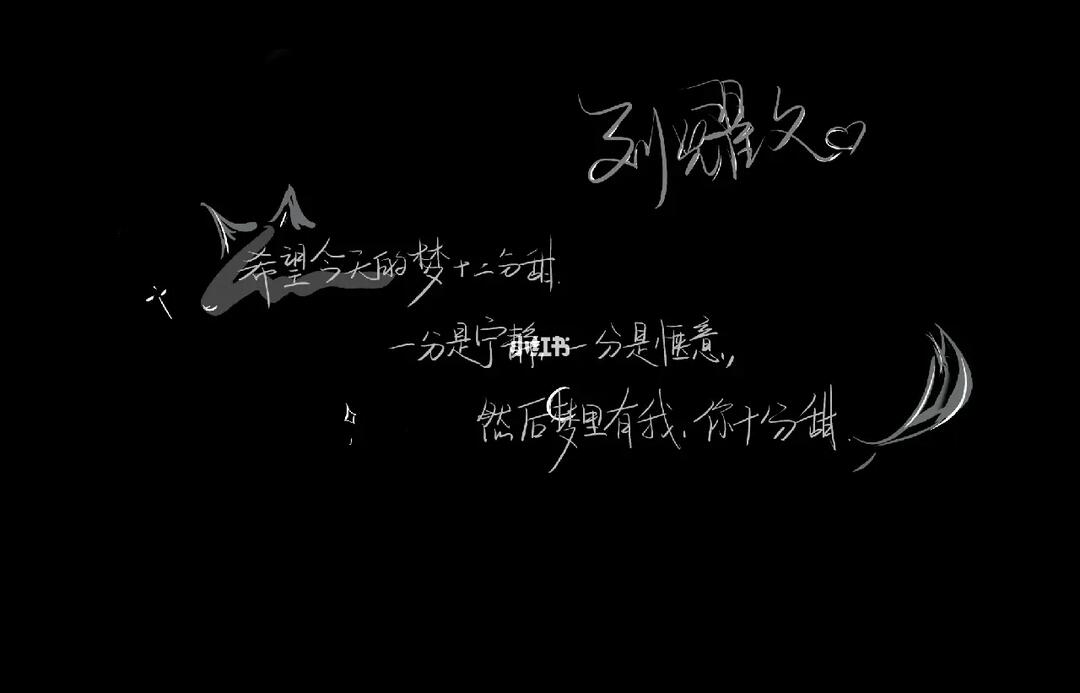 刘耀文
希望今天的梦十二分甜.
一分是宁静,一分是惬意,,
然后梦里有我,你十分甜.
小红书